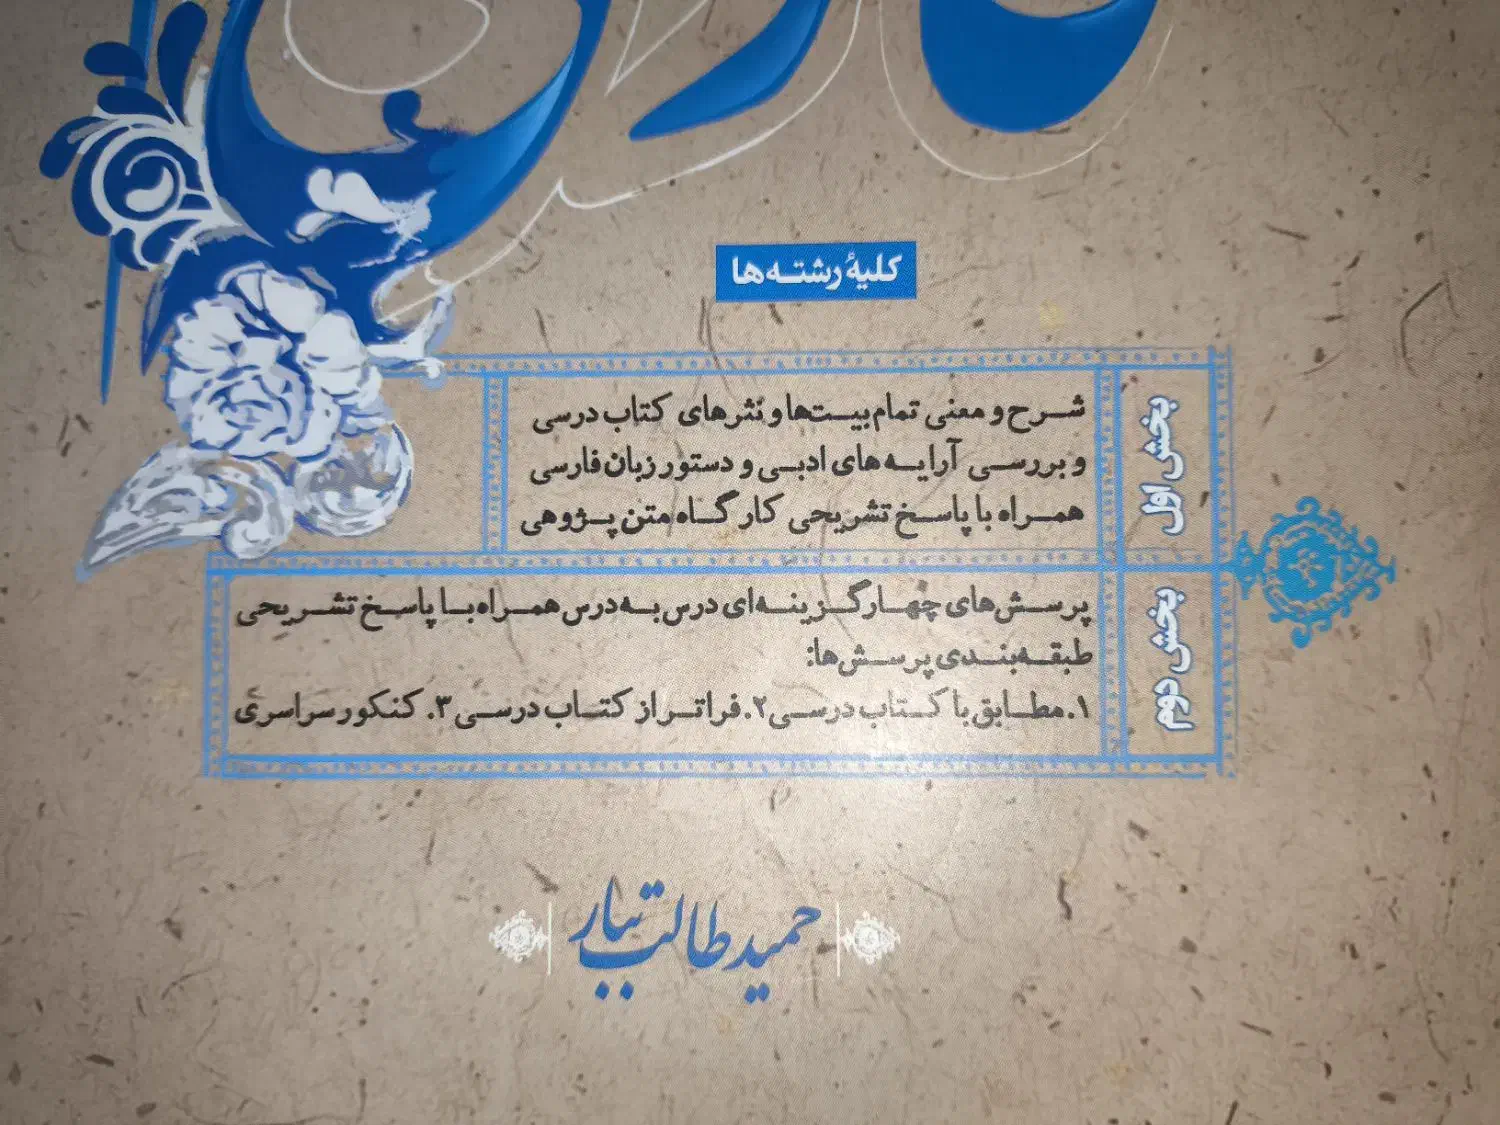 کلیهٔ رشته‌ها
بخش اول
شرح و معنی تمام بیت‌ها و نثرهای کتاب درسی
و بررسی آرایه‌های ادبی و دستور زبان فارسی
همراه با پاسخ تشریحی کارگاه متن پژوهی
بخش دوم
پرسش‌های چهارگزینه‌ای درس به درس همراه با پاسخ تشریحی
طبقه‌بندی پرسش‌ها:
۱. مطابق با کتاب درسی ۲. فراتر از کتاب درسی ۳. کنکور سراسری
حمید طالب تبار